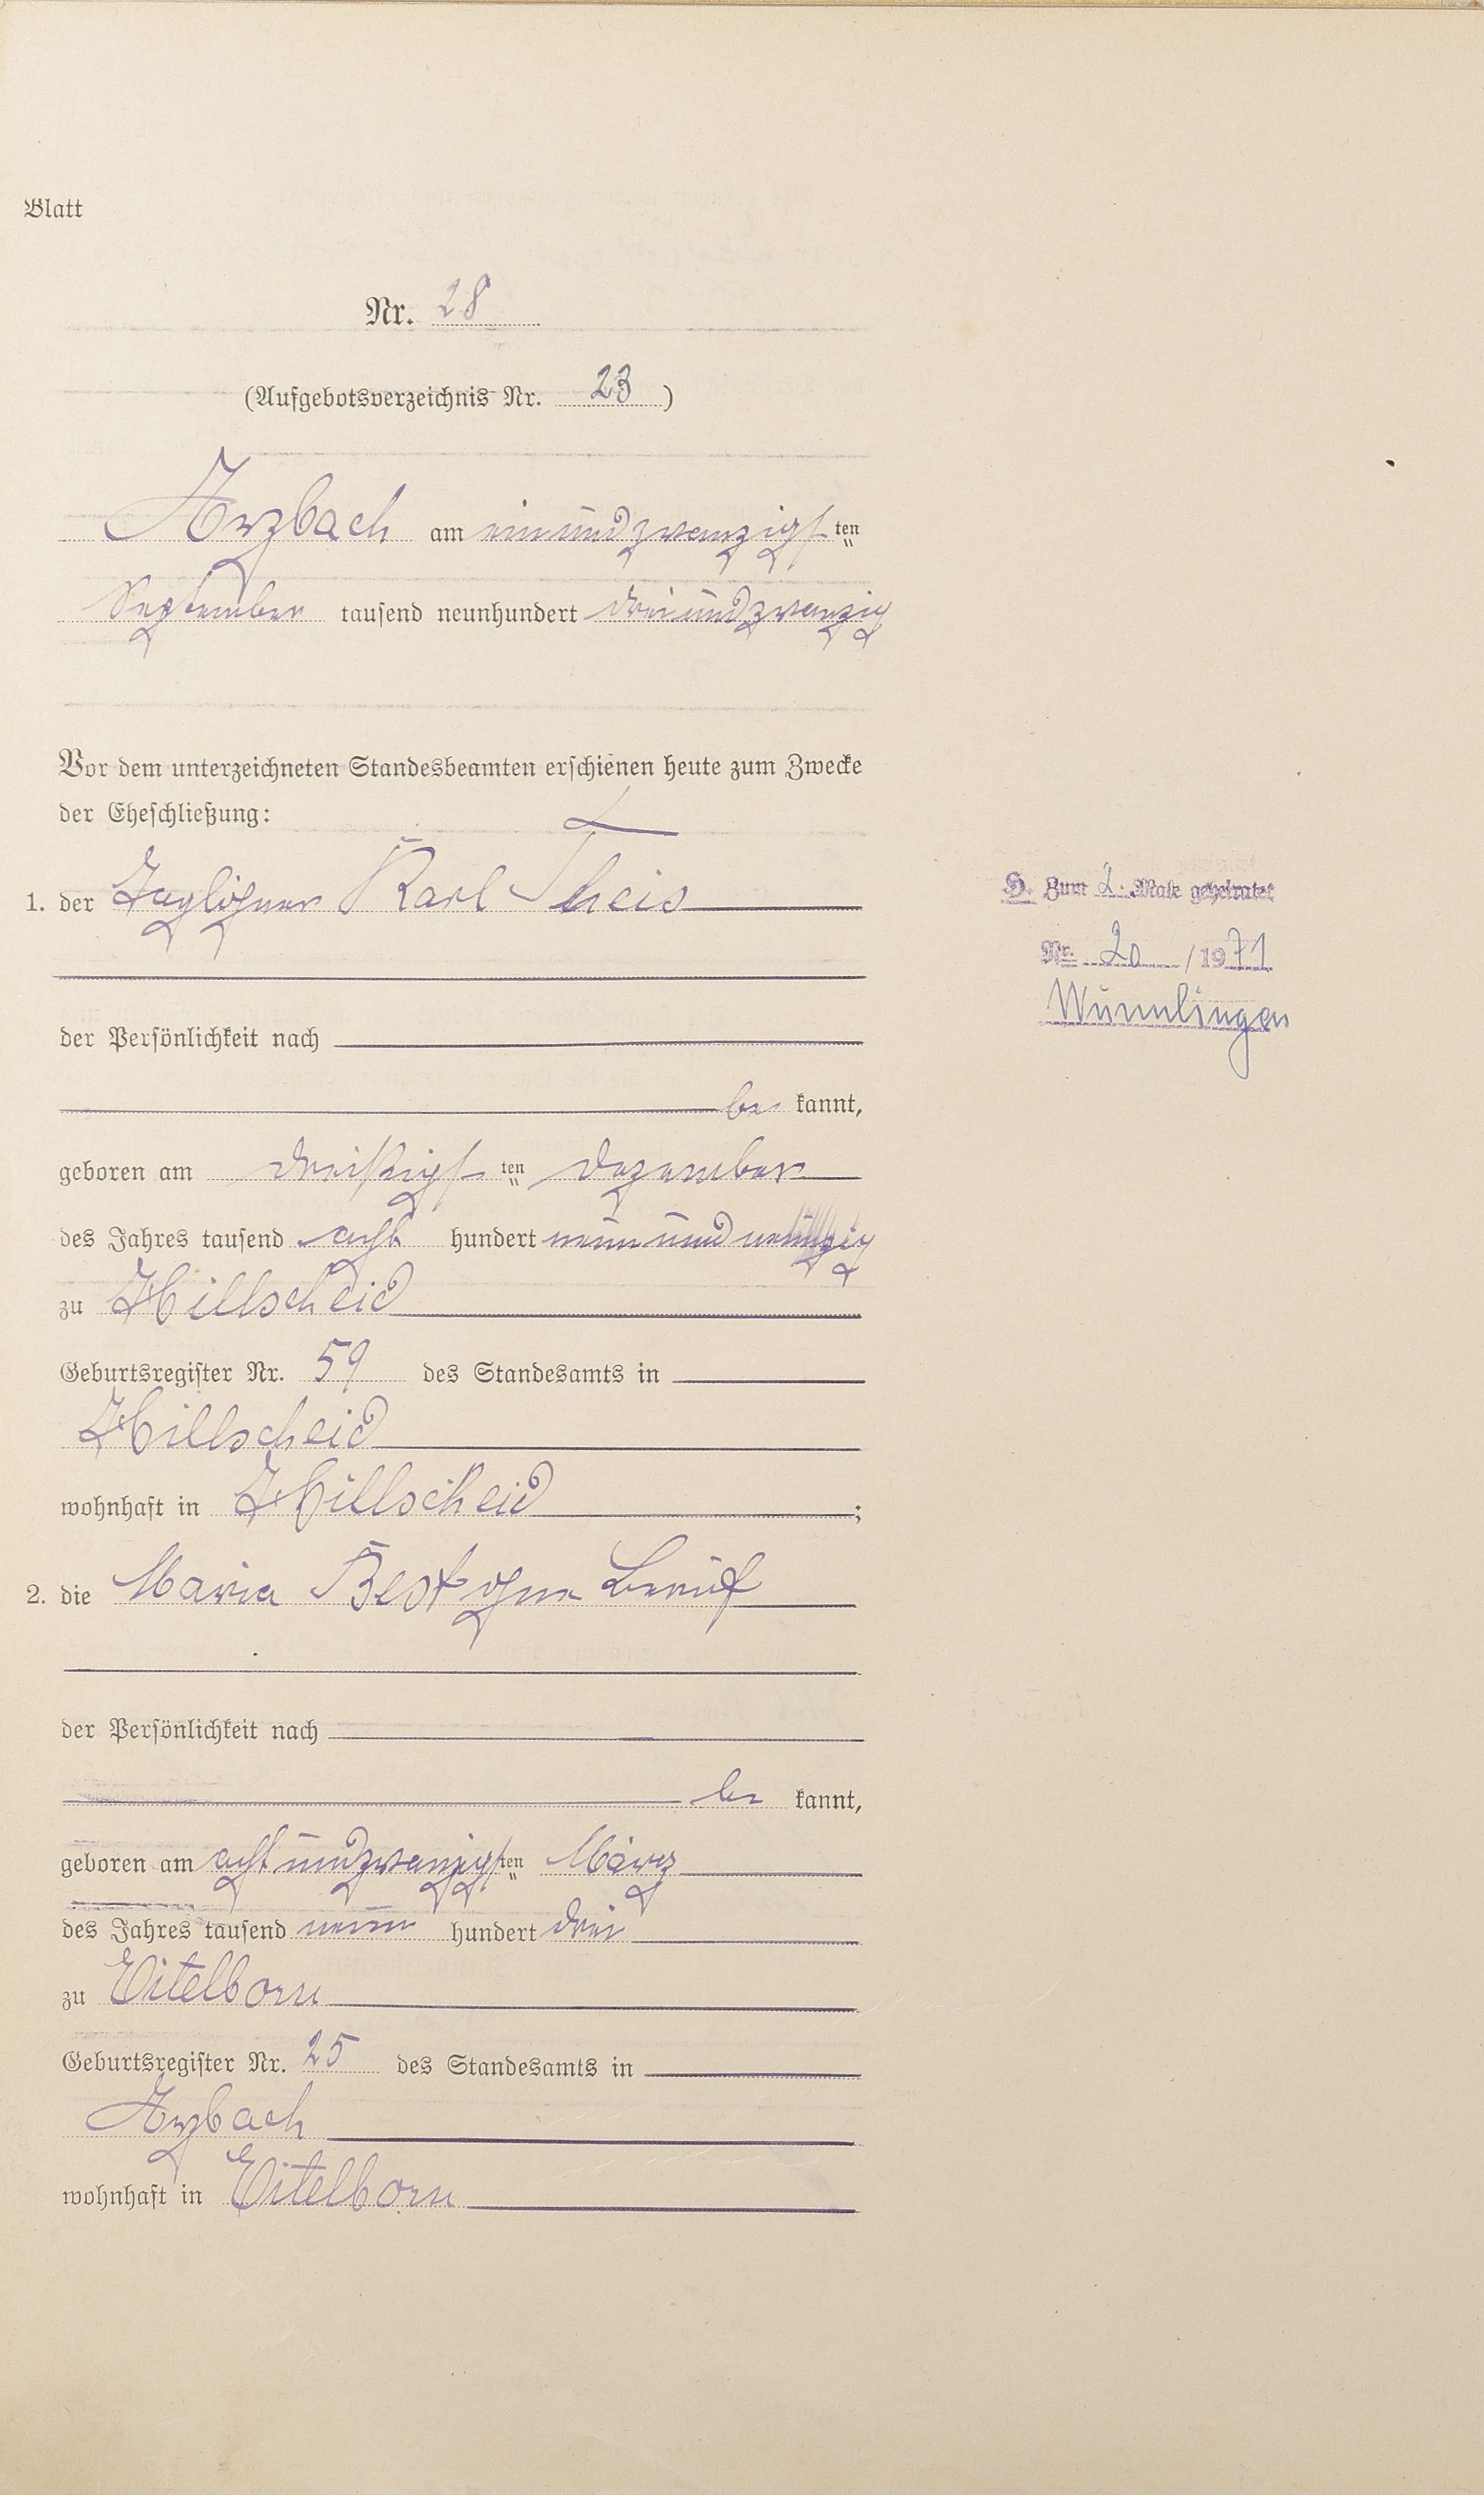 Blatt
Nr. 28
(Aufgebotsverzeichnis Nr. 23)
Arzbach am einundzwanzigsten
September tausend neunhundert dreiundzwanzig
Vor dem unterzeichneten Standesbeamten erschienen heute zum Zwecke
der Eheschließung:
1. der Taglöhner Karl Theis
der Persönlichkeit nach
be kannt,
geboren am dreißigsten Dezember
des Jahres tausend acht hundert neunundneunzig
zu Hillscheid
Geburtsregister Nr. 59 des Standesamts in
Hillscheid
wohnhaft in Hillscheid;
2. die Maria Best ohne Beruf
der Persönlichkeit nach
be kannt,
geboren am achtundzwanzigsten März
des Jahres tausend neun hundert drei
zu Eitelborn
Geburtsregister Nr. 25 des Standesamts in
Arzbach
wohnhaft in Eitelborn
Zum 2. Male geheiratet
Nr. 20 / 1971